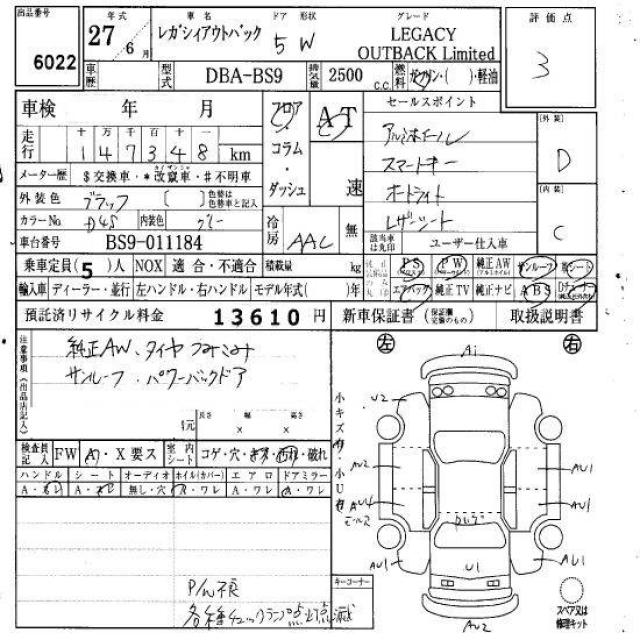 出品番号 6022
年式 27 6月
車名 レガシィアウトバック
ドア 形状 5 W
グレード
LEGACY
OUTBACK Limited
評価点
3
車歴
型式 DBA-BS9
排気量 2500 C.C.
燃料 ガソリン・( )・軽油
車検 年 月
走行 十 万 千 百 十 一
1 4 7 3 4 8 km
メーター歴 $交換車・*改竄車・#不明車
外装色 ブラック 〔 〕 色替は色替車と記入
カラーNo D4S 内装色 グレー
車台番号 BS9-011184
フロア・コラム・ダッシュ
AT
速
冷房 AAC 無
セールスポイント
アルミホイール
スマートキー
オートライト
レザーシート
該当車は丸印 ユーザー仕入車
[外装]
D
[内装]
C
乗車定員(5)人 NOX 適合・不適合 積載量 kg
PS PW 純正AW サンルーフ 革シート
輸入車 ディーラー・並行 左ハンドル・右ハンドル モデル年式( )年
エアバック 純正TV 純正ナビ ABS
預託済リサイクル料金 13610円
新車保証書 (保証欄完備のもの) 取扱説明書
注意事項(出品店記入)
純正AW、タイヤつみこみ
サンルーフ・パワーバックドア
元 長さ × 幅 × 高さ
検査員記入 FW A・X要ス
室内シート コゲ・穴・キズ・汚れ・破れ
ハンドル シート オーディオ ホイル(カバー) エアロ ドアミラー
A・スレ A・スレ 無し・穴 A・ワレ A・ワレ A・ワレ
P/W不良
各種チェックランプ点灯点滅
キーコーナー
小キズ・小U
左 右
A1
U2
AU2
AU1
AU4
モール
AU1
AU1
U1
AU1
AU2
スペア又は
修理キット